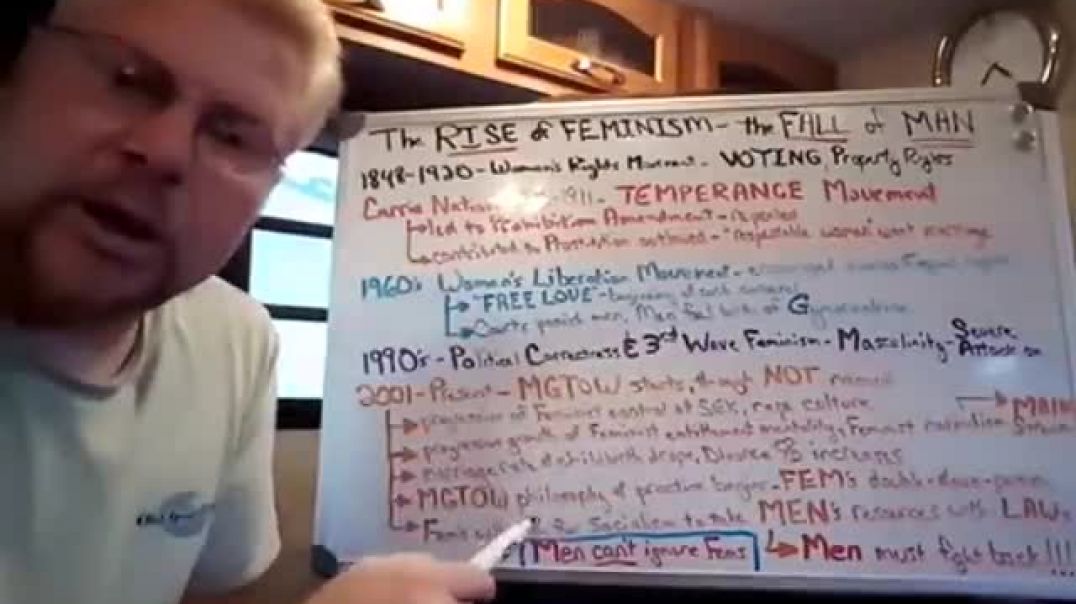 The RISE of FEMINISM - the FALL of MAN
1848-1920 - Women's Rights Movment - VOTING, Property Rights
Carrie Nation 1911 - TEMPERANCE Movement
led to Prohibition Amendment - repealed
contributed to Prostitution outlawed - "respectable women" want marriage
1960's Women's Liberation Movement -
"FREE LOVE" - beginning of
Courts punish men, Men feel of Gynocentrism
1990's - Political Correctness & 3rd Wave Feminism - Masculinity - Severe Attack on
2001-Present - MGTOW starts, though NOT named
progression of Feminist control of SEX, rape culture
MAIN Stream
progressive growth of Feminist entitlement mentality, Feminist
marriage rate & childbirth drops, Divorce % increases
MGTOW philosophy & practice begins - FEM's double-down
Fems Socialism to take MEN's resources with LAWs
Men can't ignore Fems
Men must fight back!!!